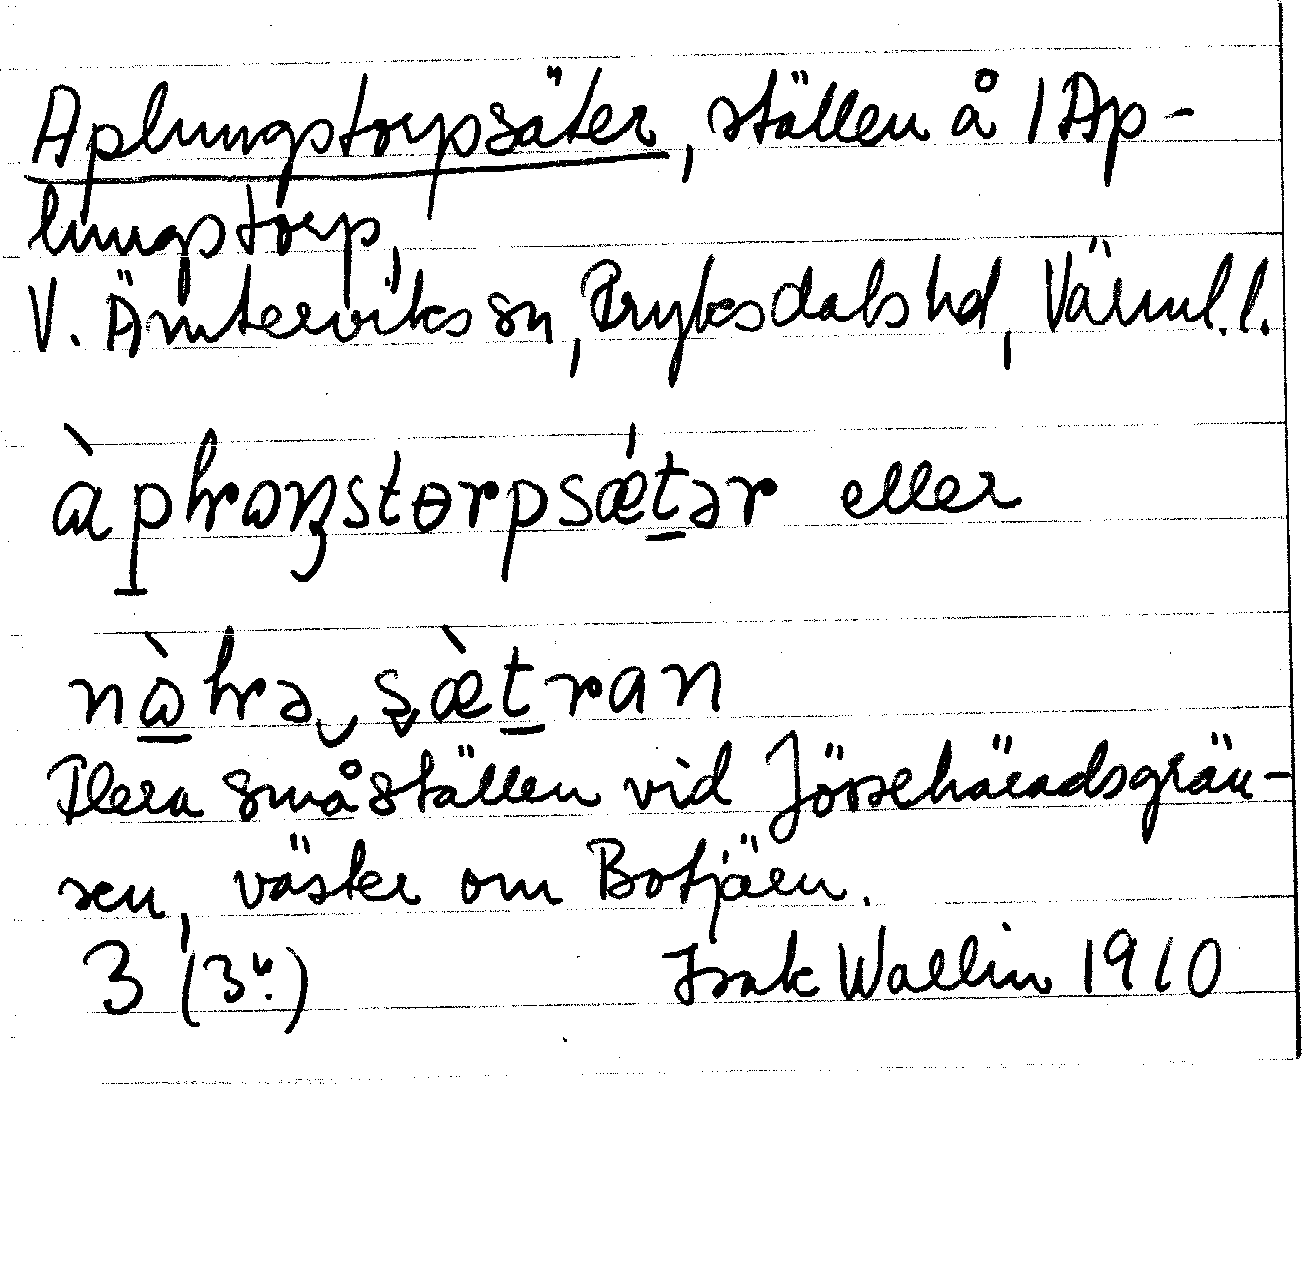 Aplungstorpsäter, ställen å 1 Ap-
lungstorp,
V. Ämterviks sn, Fryksdals hd, Värml. l.
eller
Flera småställen vid Jössehäradsgrän-
sen, väster om Botjärn.
3 (3u.) Isak Wallin 1910